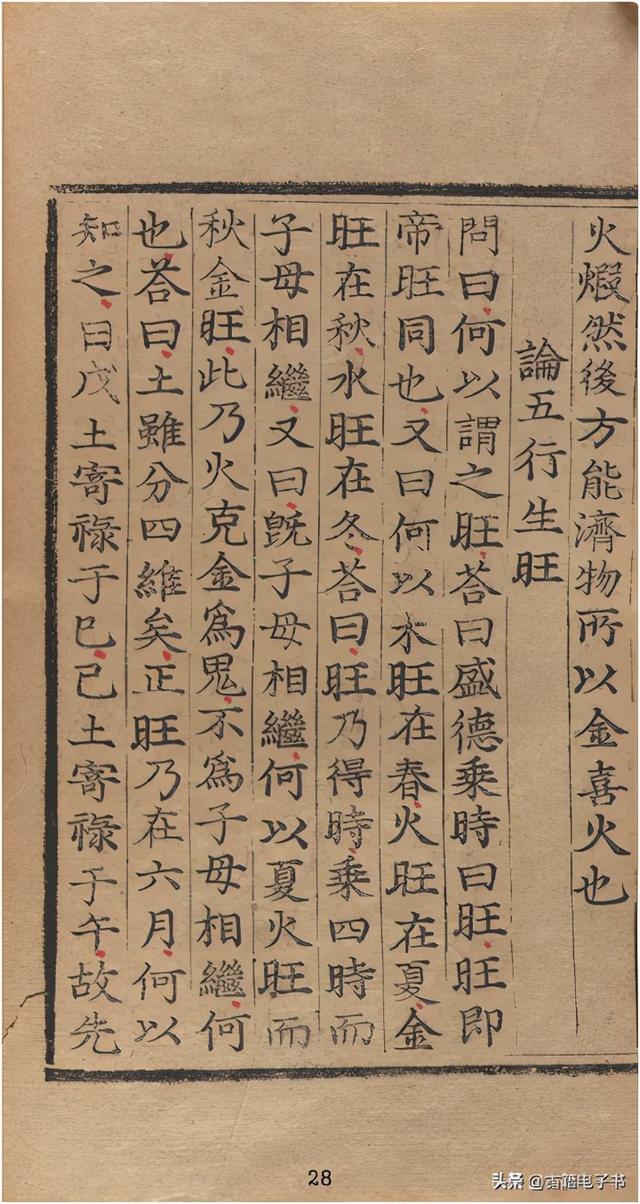 火煅然後方能濟物所以金喜火也
論五行生旺
問曰何以謂之旺荅曰盛德乘時曰旺旺即
帝旺同也又曰何以木旺在春火旺在夏金
旺在秋水旺在冬荅曰旺乃得時乘四時而
子母相繼又曰旣子母相繼何以夏火旺而
秋金旺此乃火克金爲鬼不爲子母相繼何
也荅曰土雖分四維矣正旺乃在六月何以
知之曰戊土寄祿于巳己土寄祿于午故先
28
头条 @古籍电子书